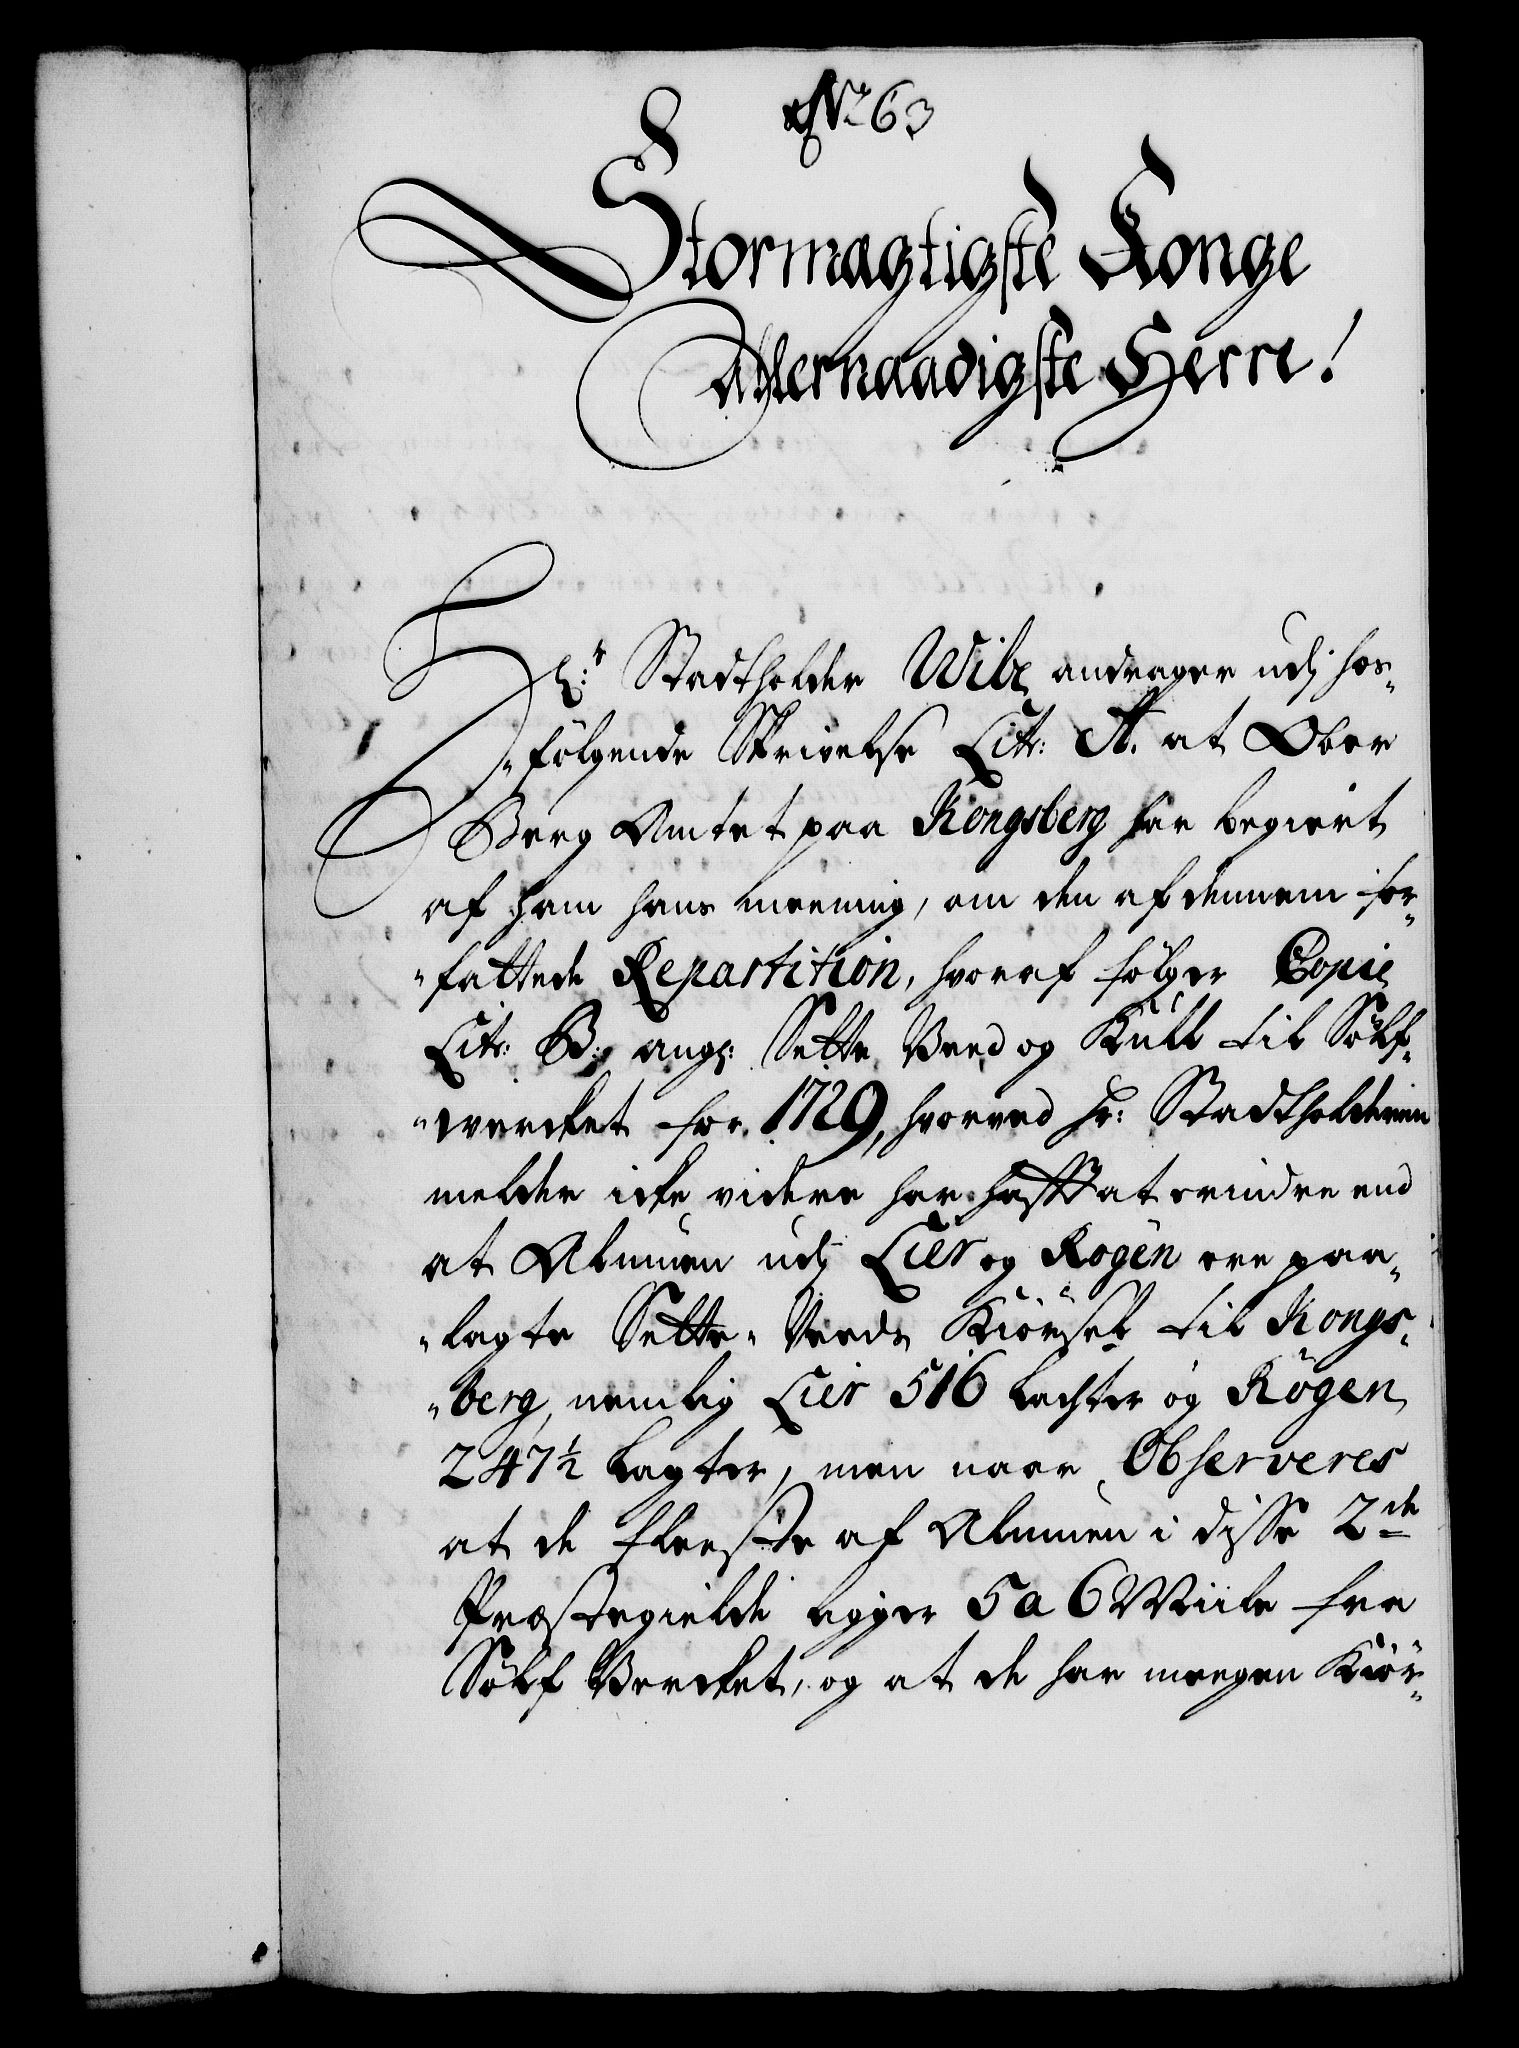 No 63
Stormægtigste Konge
Allernaadigste Herre!
Hr: Stadtholder Wibe andrager udj hos-
"følgende Skrivelse Litr: A. at Ober
Berg Amtet paa Kongsberg har begiert
af ham hans meening, om den af dennem for-
"fattede Repartition, hvoraf følger Copie
Litr: B: ang: Sette Veed og Kull til Sølf-
"wercket for 1729, hvorved hr: Stadtholderen
melder icke videre har hafft at erindre end
at Almuen udj Lier og Rogen ere paa-
"lagte Sette-Veeds Kiørsel til Kongs-
"berg, nemlig Lier 516 Lachter og Røgen
247½ Lagter, men naar Observeres
at de fleeste af Almuen i disse 2de
Præstegielde ligger 5 a 6 Miile fra
Sølf Vercket, og at de har meegen Kiør-